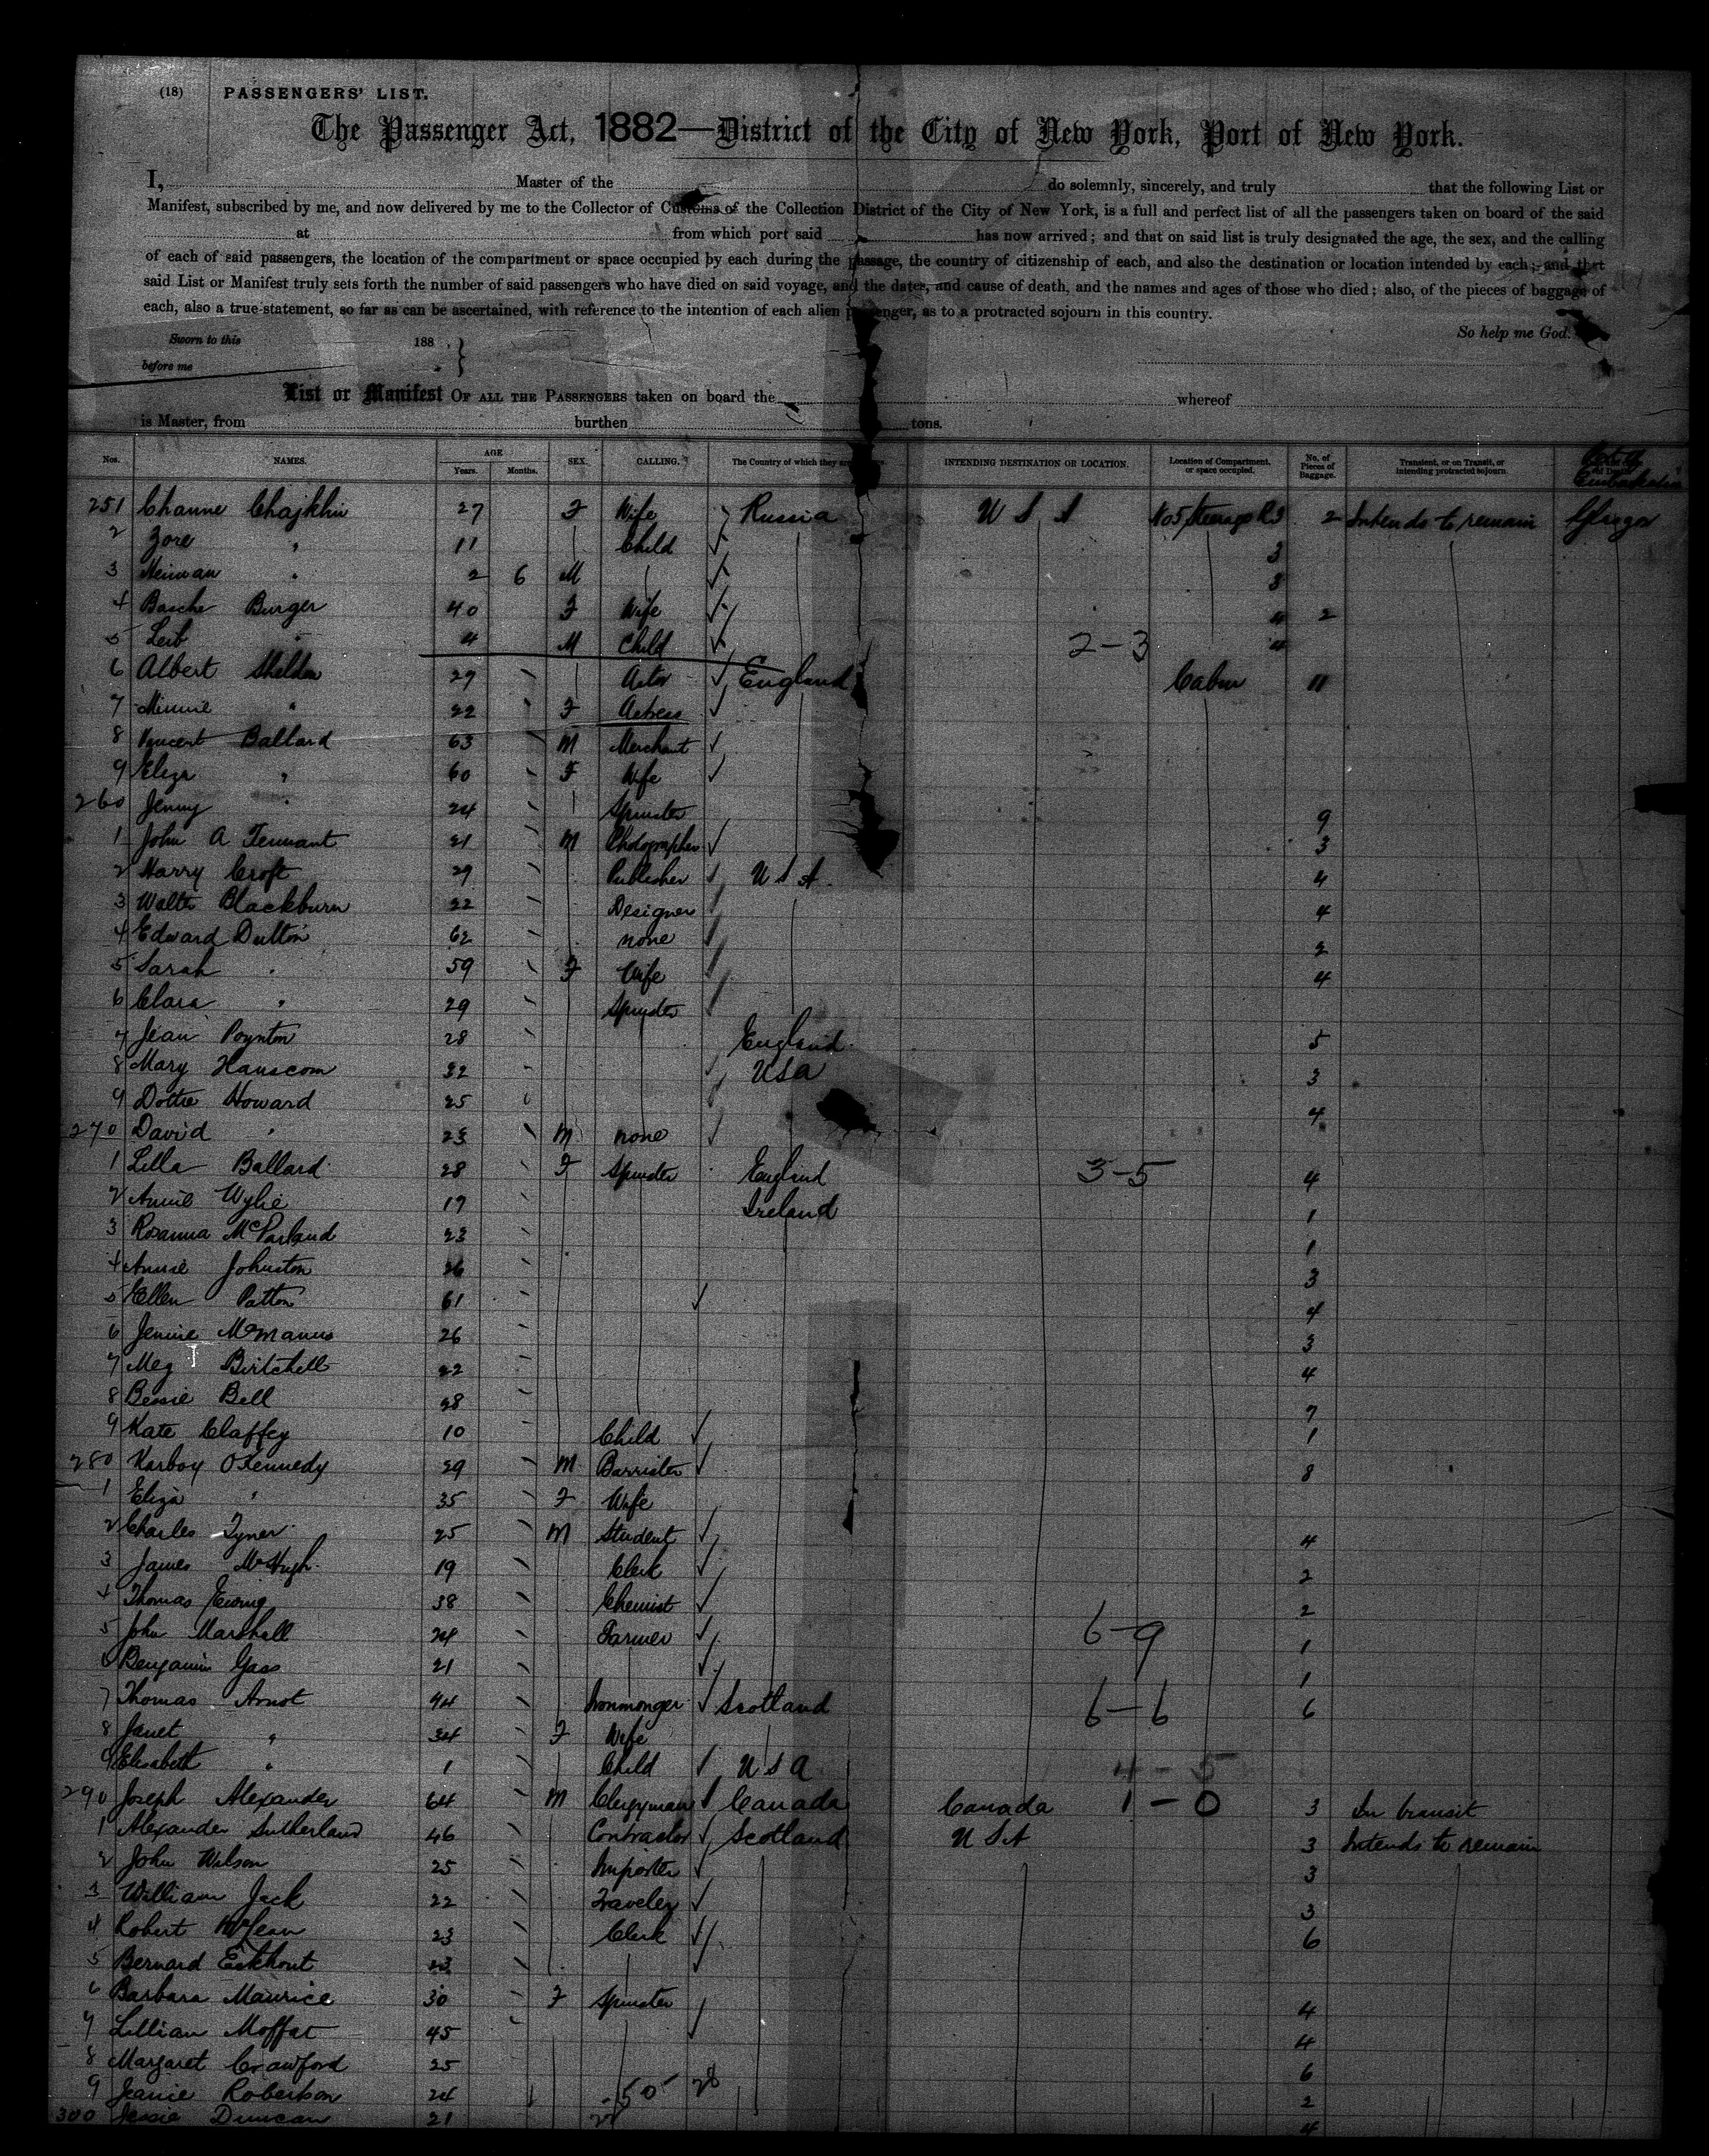 (18) PASSENGERS' LIST.
The Passenger Act, 1882—District of the City of New York, Port of New York.
I, Master of the do solemnly, sincerely, and truly that the following List or
Manifest, subscribed by me, and now delivered by me to the Collector of Customs of the Collection District of the City of New York, is a full and perfect list of all the passengers taken on board of the said
at from which port said has now arrived; and that on said list is truly designated the age, the sex, and the calling
of each of said passengers, the location of the compartment or space occupied by each during the passage, the country of citizenship of each, and also the destination or location intended by each; and that
said List or Manifest truly sets forth the number of said passengers who have died on said voyage, and the dates, and cause of death, and the names and ages of those who died; also, of the pieces of baggage of
each, also a true statement, so far as can be ascertained, with reference to the intention of each alien passenger, as to a protracted sojourn in this country.
So help me God.
Sworn to this 188
before me
List or Manifest OF ALL THE PASSENGERS taken on board the whereof
is Master, from burthen tons.
Nos. NAMES. AGE Years. Months. SEX. CALLING. The Country of which they are INTENDING DESTINATION OR LOCATION. Location of Compartment, or space occupied. No. of Pieces of Baggage. Transient, or on Transit, or intending protracted sojourn.
251 Channe Chajkhin 27 F Wife Russia U S A No5 Steerage 2 Intends to remain
2 Zore " 11 Child 3
3 " 2 6 M 3
4 Basche Burger 40 F Wife 4 2
5 Leib " 4 M Child 2-3 4
6 Albert Sheldon 29 Actor England Cabin 11
7 Minnie " 22 F Actress
8 Vincent Ballard 63 M Merchant
9 Eliza " 60 F Wife
260 Jenny " 24 Spinster 9
1 John A Tennant 21 M Photographer 3
2 Harry Croft 29 Publisher U S A 4
3 Walter Blackburn 22 Designer 4
4 Edward Dutton 62 none 2
5 Sarah " 59 F Wife 4
6 Clara " 29 Spinster
7 Jean Poynton 28 England 5
8 Mary Hanscom 32 USA 3
9 Dottie Howard 25 4
270 David " 23 M none
1 Lilla Ballard 28 F Spinster England 3-5 4
2 Annie Wylie 19 Ireland 1
3 Rosanna McParland 23 1
4 Annie Johnston 26 3
5 Ellen Patton 61 4
6 Jennie McManus 26 3
7 Meg Birtchell 22 4
8 Bessie Bell 28 7
9 Kate Claffey 10 Child 1
280 OKennedy 29 M Barrister 8
1 Eliza " 35 F Wife
2 Charles Tyner 25 M Student 4
3 James McHugh 19 Clerk 2
4 Thomas Ewing 38 Chemist 2
5 John Marshall 24 Farmer 6-9 1
6 Benjamin Gass 21 1
7 Thomas Arnot 44 Ironmonger Scotland 6-6 6
8 Janet " 34 F Wife
9 Elisabeth " 1 Child U S A 4-5
290 Joseph Alexander 64 M Clergyman Canada Canada 1-0 3 In transit
1 Alexander Sutherland 46 Contractor Scotland U S A 3 Intends to remain
2 John Wilson 25 Importer 3
3 William Jack 22 Traveler 3
4 Robert McLean 23 Clerk 6
5 Bernard Eckhout 23
6 Barbara Maurice 30 F Spinster 4
7 Lillian Moffat 45 4
8 Margaret Crawford 25 6
9 Jeanie Robertson 24 50 2
300 Jessie Duncan 21 4